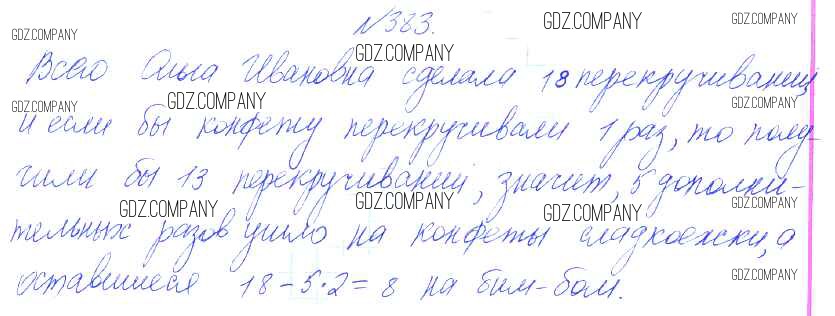 №383.
Всего Ольга Ивановна сделала 18 перекручиваний,
и если бы конфету перекручивали 1 раз, то полу-
чили бы 13 перекручиваний, значит, 5 дополни-
тельных разов ушло на конфеты сладкоежки, а
оставшиеся 18-5·2=8 на бим-бом.
GDZ.COMPANY
GDZ.COMPANY
GDZ.COMPANY
GDZ.COMPANY
GDZ.COMPANY
GDZ.COMPANY
GDZ.COMPANY
GDZ.COMPANY
GDZ.COMPANY
GDZ.COMPANY
GDZ.COMPANY
GDZ.COMPANY
GDZ.COMPANY